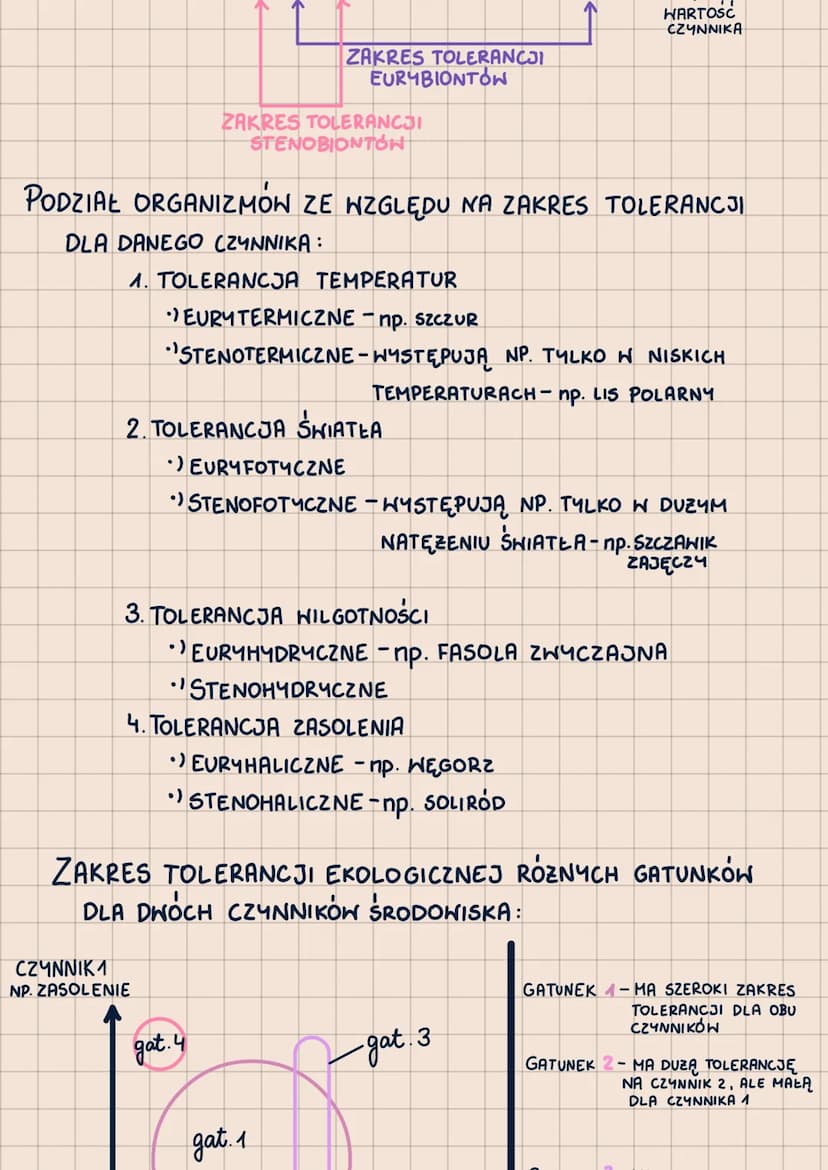 WARTOŚĆ
CZYNNIKA
ZAKRES TOLERANCJI
EURYBIONTÓW
ZAKRES TOLERANCJI
STENOBIONTÓW
PODZIAŁ ORGANIZMÓW ZE WZGLĘDU NA ZAKRES TOLERANCJI
DLA DANEGO CZYNNIKA:
1. TOLERANCJA TEMPERATUR
·) EURYTERMICZNE - np. SZCZUR
·) STENOTERMICZNE - WYSTĘPUJĄ NP. TYLKO W NISKICH
TEMPERATURACH - np. LIS POLARNY
2. TOLERANCJA ŚWIATŁA
·) EURYFOTYCZNE
·) STENOFOTYCZNE - WYSTĘPUJĄ NP. TYLKO W DUŻYM
NATĘŻENIU ŚWIATŁA - np. SZCZAWIK
ZAJĘCZY
3. TOLERANCJA WILGOTNOŚCI
·) EURYHYDRYCZNE - np. FASOLA ZWYCZAJNA
·) STENOHYDRYCZNE
4. TOLERANCJA ZASOLENIA
·) EURYHALICZNE - np. WĘGORZ
·) STENOHALICZNE - np. SOLIRÓD
ZAKRES TOLERANCJI EKOLOGICZNEJ RÓŻNYCH GATUNKÓW
DLA DWÓCH CZYNNIKÓW ŚRODOWISKA:
CZYNNIK 1
NP. ZASOLENIE
gat. 4
gat. 3
gat. 1
GATUNEK 1 - MA SZEROKI ZAKRES
TOLERANCJI DLA OBU
CZYNNIKÓW
GATUNEK 2 - MA DUŻĄ TOLERANCJĘ
NA CZYNNIK 2, ALE MAŁĄ
DLA CZYNNIKA 1